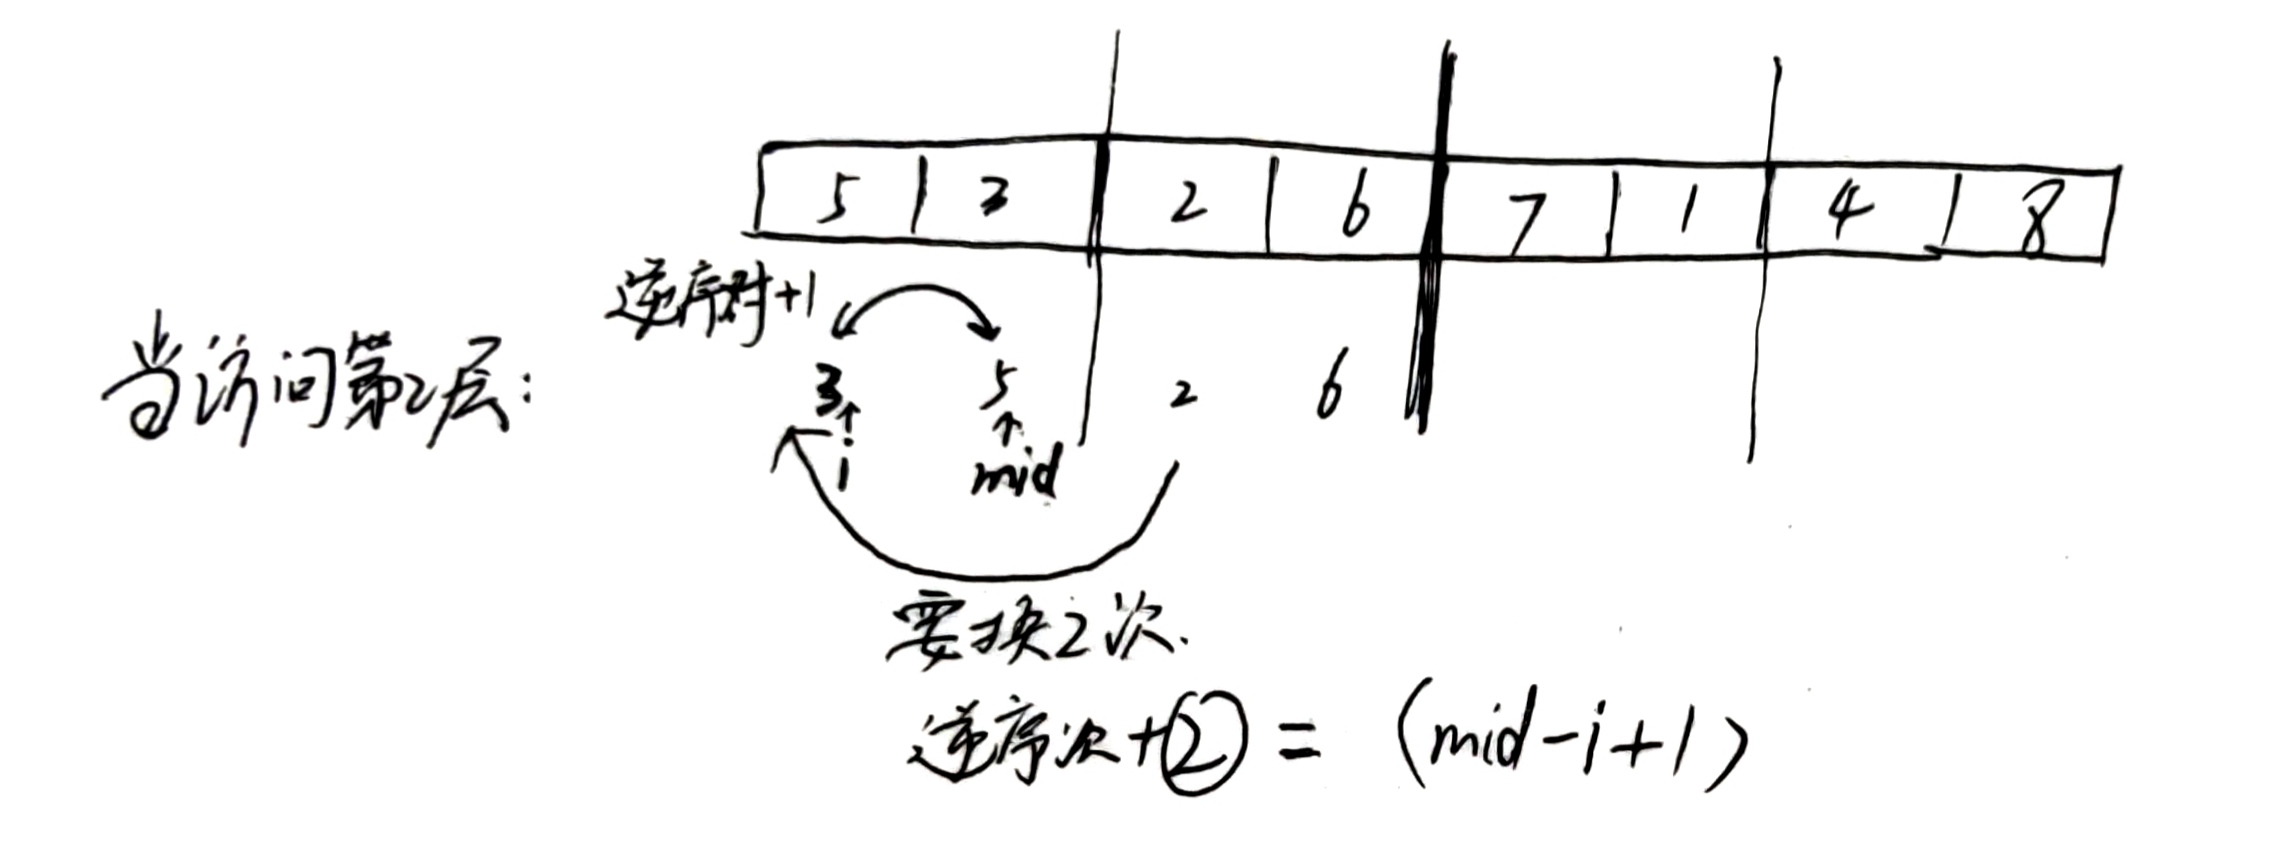 5 3 2 6 7 1 4 8
逆序对+1
当访问第2层: 3 5 2 6
i mid
要换2次.
逆序次+② = (mid-i+1)